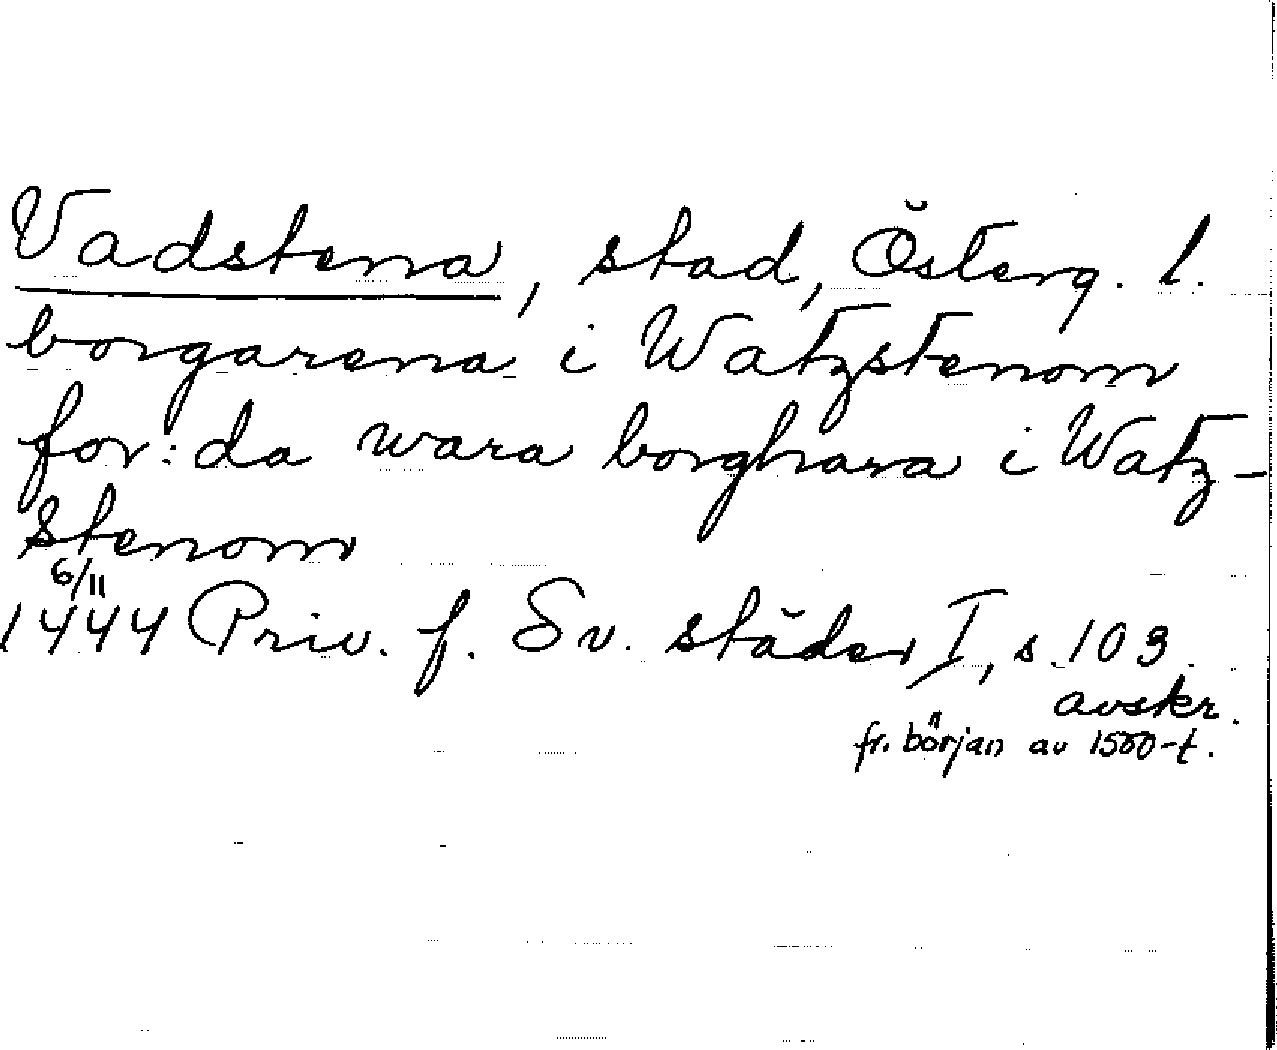 Vadstena, stad, Österg. l.
borgarena i Watzstenom
for: da wara borghara i Watz-
stenom
6/11
1444 Priv. f. Sv. städer I, s. 103
avskr.
fr. början av 1500-t.